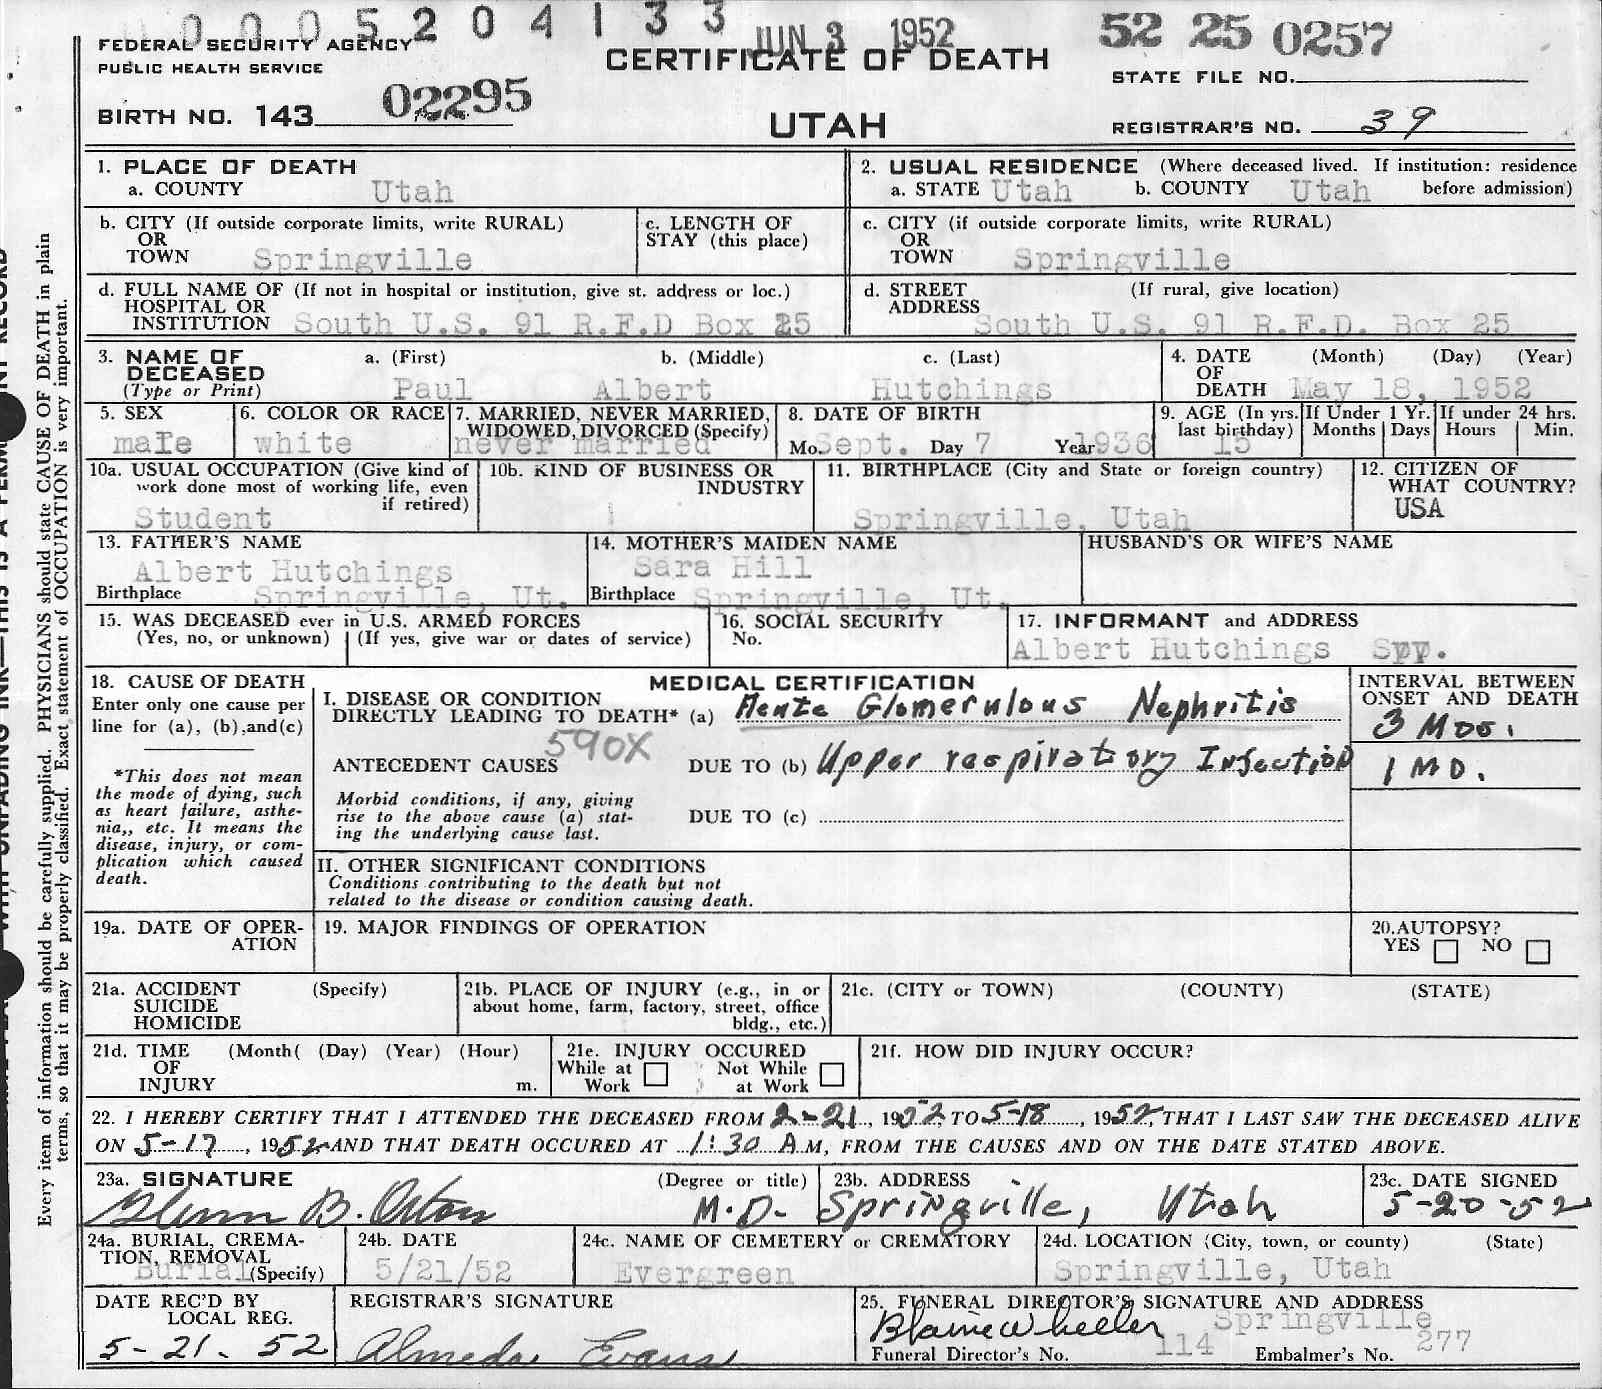 0005204133 JUN 3 1952 52 25 0257
FEDERAL SECURITY AGENCY
PUBLIC HEALTH SERVICE
CERTIFICATE OF DEATH
STATE FILE NO.
BIRTH NO. 143 02295
UTAH
REGISTRAR'S NO. 39
1. PLACE OF DEATH
a. COUNTY Utah
2. USUAL RESIDENCE (Where deceased lived. If institution: residence
a. STATE Utah b. COUNTY Utah before admission)
b. CITY (If outside corporate limits, write RURAL)
OR
TOWN Springville
c. LENGTH OF
STAY (this place)
c. CITY (if outside corporate limits, write RURAL)
OR
TOWN Springville
d. FULL NAME OF (If not in hospital or institution, give st. address or loc.)
HOSPITAL OR
INSTITUTION South U.S. 91 R.F.D Box 25
d. STREET (If rural, give location)
ADDRESS
South U.S. 91 R.F.D. Box 25
3. NAME OF a. (First) b. (Middle) c. (Last)
DECEASED
(Type or Print) Paul Albert Hutchings
4. DATE (Month) (Day) (Year)
OF
DEATH May 18, 1952
5. SEX
male
6. COLOR OR RACE
white
7. MARRIED, NEVER MARRIED,
WIDOWED, DIVORCED (Specify)
never married
8. DATE OF BIRTH
Mo. Sept. Day 7 Year 1936
9. AGE (In yrs.
last birthday)
15
If Under 1 Yr.
Months Days
If under 24 hrs.
Hours Min.
10a. USUAL OCCUPATION (Give kind of
work done most of working life, even
if retired)
Student
10b. KIND OF BUSINESS OR
INDUSTRY
11. BIRTHPLACE (City and State or foreign country)
Springville, Utah
12. CITIZEN OF
WHAT COUNTRY?
USA
13. FATHER'S NAME
Albert Hutchings
Birthplace Springville, Ut.
14. MOTHER'S MAIDEN NAME
Sara Hill
Birthplace Springville, Ut.
HUSBAND'S OR WIFE'S NAME
15. WAS DECEASED ever in U.S. ARMED FORCES
(Yes, no, or unknown) (If yes, give war or dates of service)
16. SOCIAL SECURITY
No.
17. INFORMANT and ADDRESS
Albert Hutchings Spv.
18. CAUSE OF DEATH
Enter only one cause per
line for (a), (b),and(c)
*This does not mean
the mode of dying, such
as heart failure, asthe-
nia,, etc. It means the
disease, injury, or com-
plication which caused
death.
MEDICAL CERTIFICATION
I. DISEASE OR CONDITION
DIRECTLY LEADING TO DEATH* (a) Acute Glomerulous Nephritis
590X
ANTECEDENT CAUSES DUE TO (b) Upper respiratory Infection
Morbid conditions, if any, giving
rise to the above cause (a) stat-
ing the underlying cause last.
DUE TO (c)
INTERVAL BETWEEN
ONSET AND DEATH
3 Mos.
1 Mo.
II. OTHER SIGNIFICANT CONDITIONS
Conditions contributing to the death but not
related to the disease or condition causing death.
19a. DATE OF OPER-
ATION
19. MAJOR FINDINGS OF OPERATION
20. AUTOPSY?
YES NO
21a. ACCIDENT (Specify)
SUICIDE
HOMICIDE
21b. PLACE OF INJURY (e.g., in or
about home, farm, factory, street, office
bldg., etc.)
21c. (CITY or TOWN) (COUNTY) (STATE)
21d. TIME (Month( (Day) (Year) (Hour)
OF
INJURY m.
21e. INJURY OCCURED
While at Not While
Work at Work
21f. HOW DID INJURY OCCUR?
22. I HEREBY CERTIFY THAT I ATTENDED THE DECEASED FROM 2-21, 1952, TO 5-18, 1952, THAT I LAST SAW THE DECEASED ALIVE
ON 5-17, 1952 AND THAT DEATH OCCURED AT 1:30 A M, FROM THE CAUSES AND ON THE DATE STATED ABOVE.
23a. SIGNATURE (Degree or title)
Glenn B. Orton M.D.
23b. ADDRESS
Springville, Utah
23c. DATE SIGNED
5-20-52
24a. BURIAL, CREMA-
TION, REMOVAL
Burial (Specify)
24b. DATE
5/21/52
24c. NAME OF CEMETERY or CREMATORY
Evergreen
24d. LOCATION (City, town, or county) (State)
Springville, Utah
DATE REC'D BY
LOCAL REG.
5-21-52
REGISTRAR'S SIGNATURE
Almeda Evans
25. FUNERAL DIRECTOR'S SIGNATURE AND ADDRESS
Blaine Wheeler Springville
Funeral Director's No. 114 Embalmer's No. 277
Every item of information should be carefully supplied. PHYSICIANS should state CAUSE OF DEATH in plain
terms, so that it may be properly classified. Exact statement of OCCUPATION is very important.